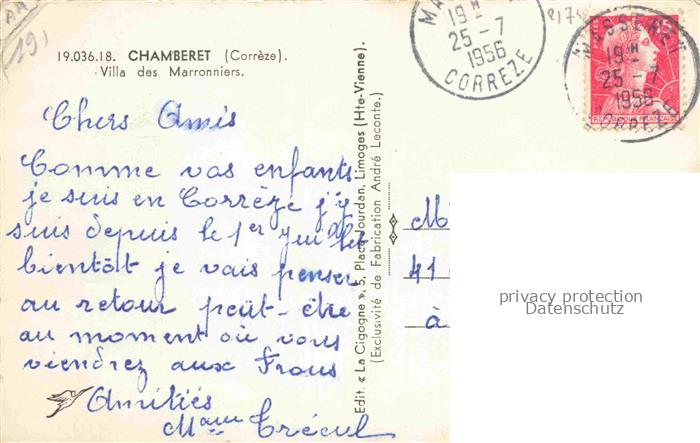 19.036.18. CHAMBERET (Corrèze).
Villa des Marronniers.
Chers Amis
Comme vos enfants
je suis en Corrèze j'y
suis depuis le 1er juillet
bientôt je vais penser
au retour peut-être
au moment où vous
viendrez aux Trous
Amitiés
Mme Trécul
Edit « La Cigogne », 5, Place Jourdan, Limoges (Hte-Vienne).
(Exclusivité de Fabrication André Leconte.)
MA
19H
25-7
1956
CORREZE
MASSERET
19H
25-7
1956
CORREZE
15F
REPUBLIQUE FRANÇAISE
M
41
à
privacy protection
Datenschutz